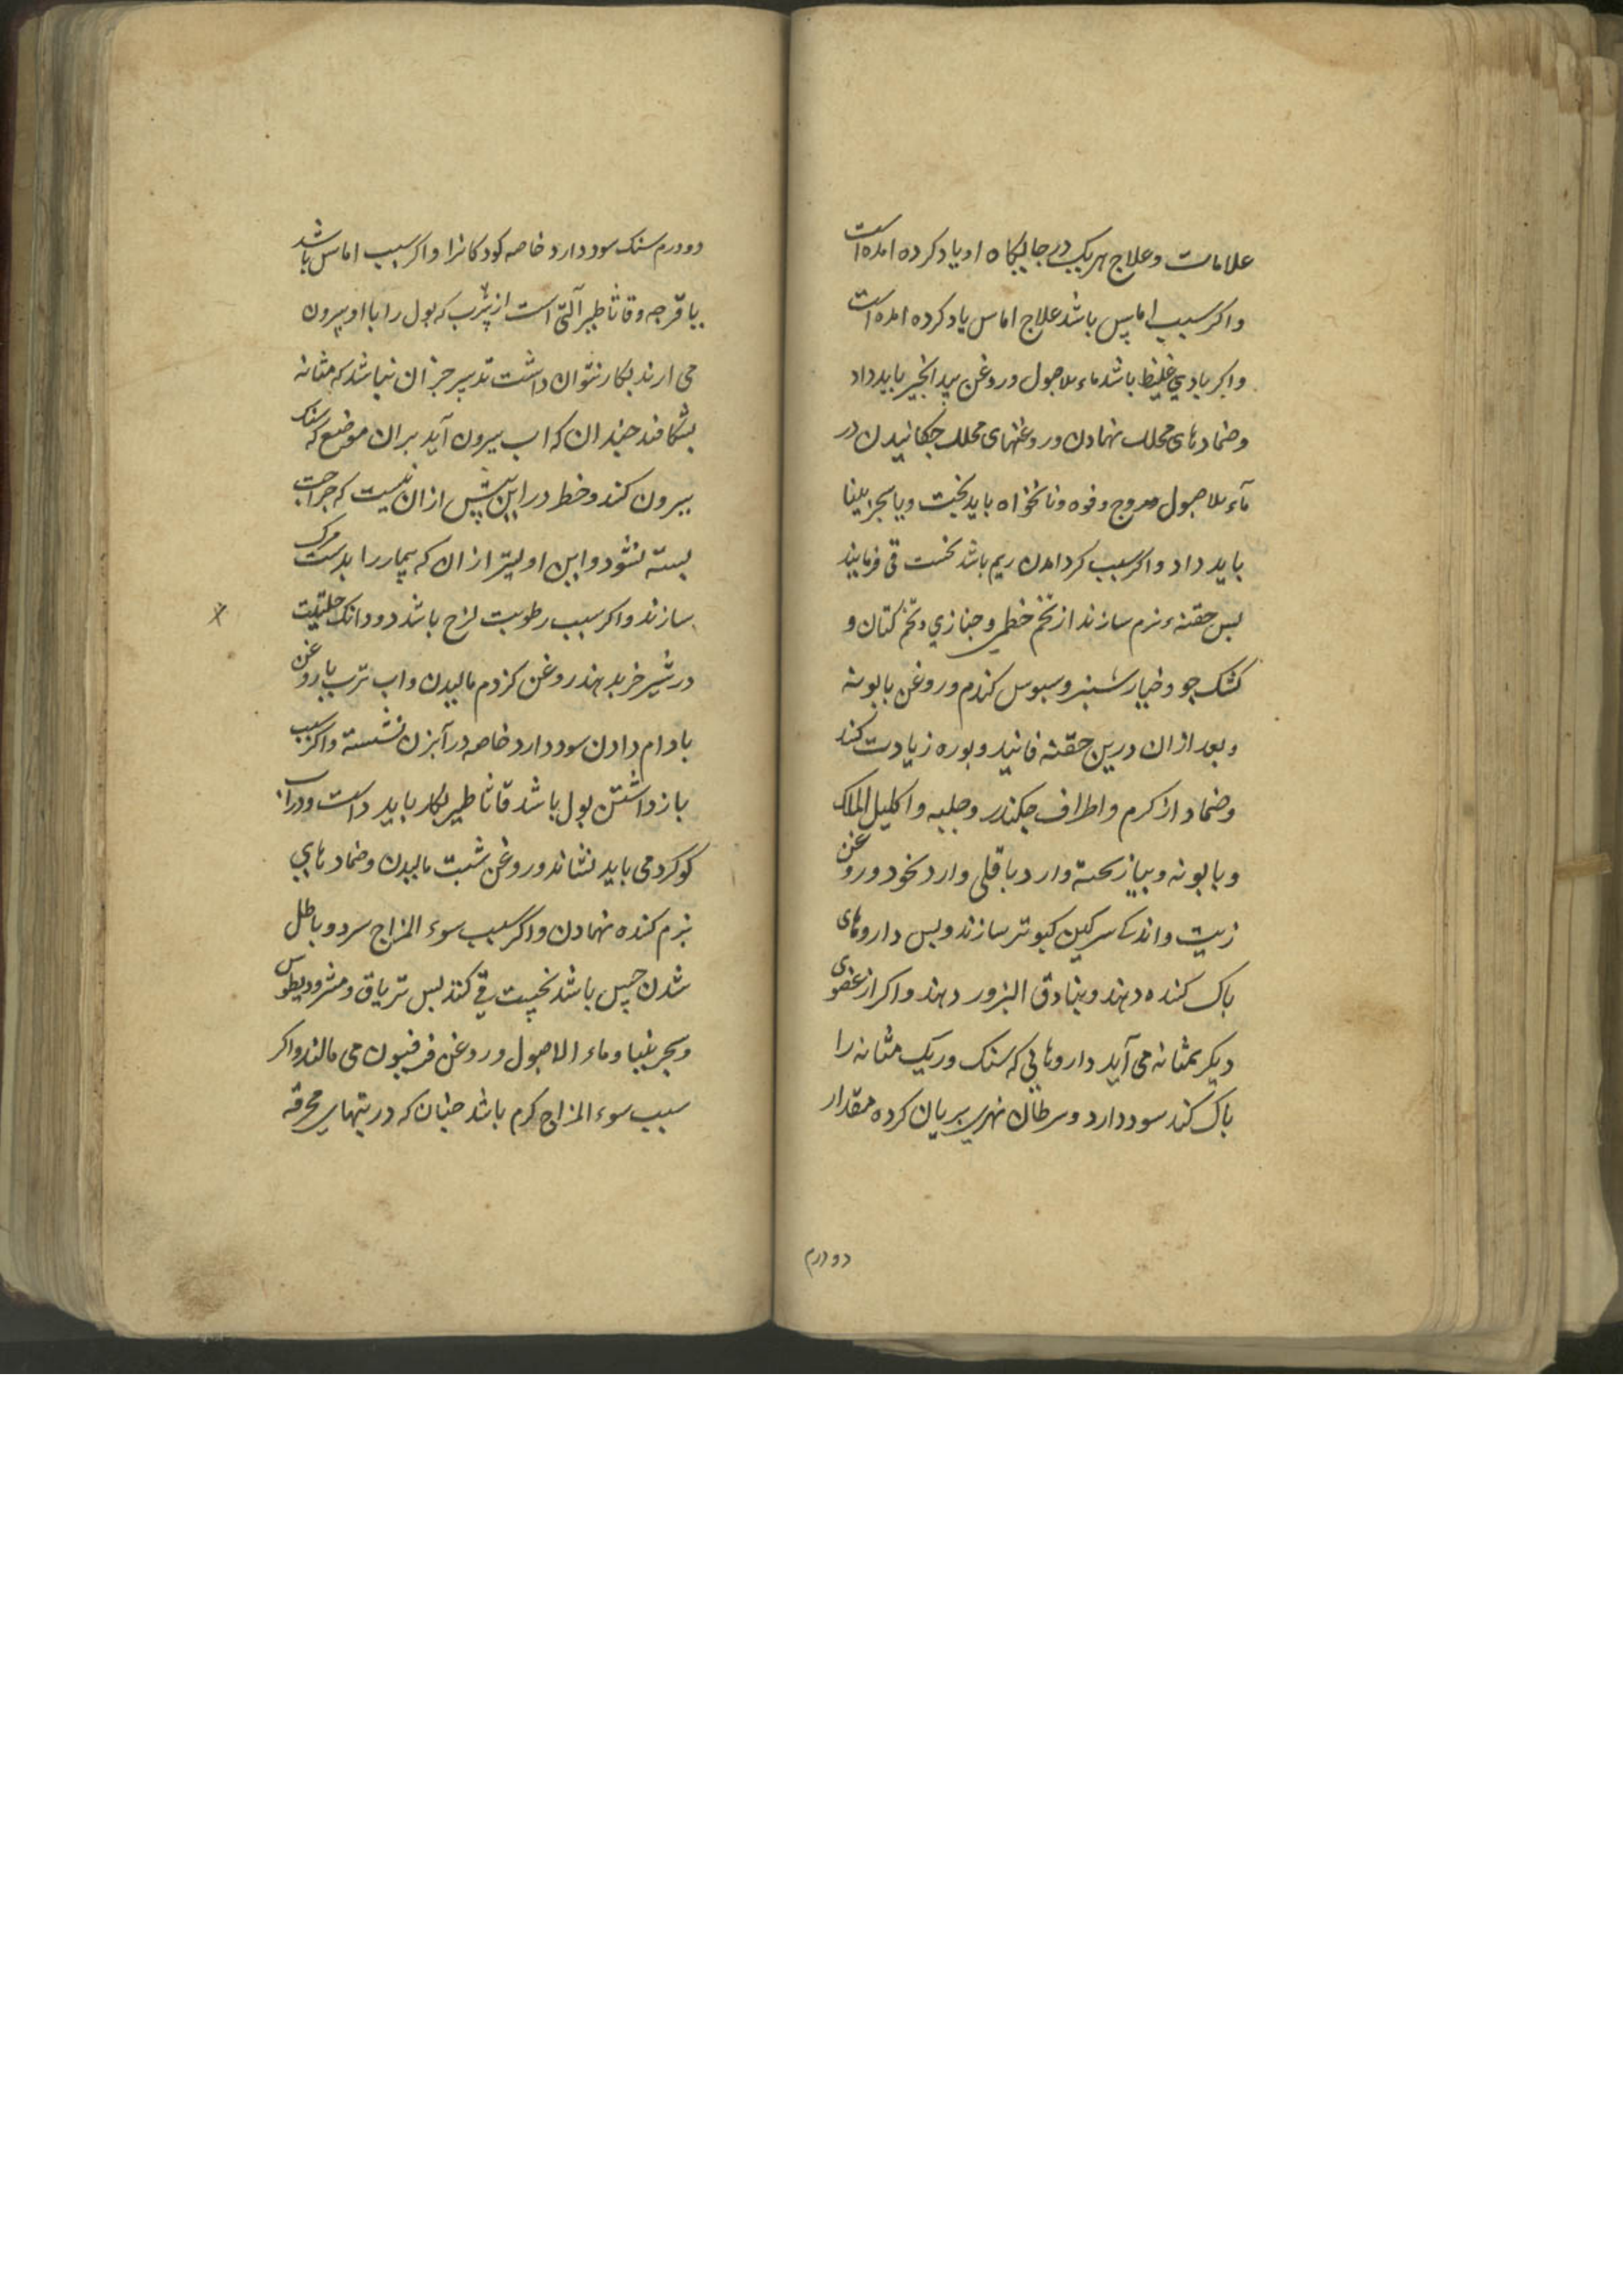 علامات و علاج هریک در جایکاه او یاد کرده امده است
و اکر سبب اماس باشد علاج اماس یاد کرده امده است
و اکر بادی غلیظ باشد ماءالاصول و روغن بید انجیر باید داد
و ضمادهای محلل نهادن و روغنهای محلل چکانیدن در
ماءالاصول و فوه و نانخواه باید پخت و یا سجزینیا
باید داد و اکر سبب کرد امدن ریم باشد نخست قی فرمایند
بس حقنهء نرم سازند از تخم خطمی و خبازی و تخم کتان و
کشک جو و خیارشنبر و سبوس کندم و روغن بابونه
و بعد ازان درین حقنه فانید و بوره زیادت کنند
و ضماد از کرم و اطراف چکندر و حلبه و اکلیل الملک
و بابونه و پیاز پخته و ارد باقلی و ارد نخود و روغن
زیت و اندک سرکین کبوتر سازند و بس داروهای
باک کننده دهند و بنادق البزور دهند و اکر از عضوی
دیکر بمثانه می آید داروهایی که سنک و ریک مثانه را
باک کند سود دارد و سرطان نهری بریان کرده مقدار
دو درم
دو درم سنک سود دارد خاصه کودکانرا و اکر سبب اماس باشد
یا قرحه و قاثاطیر آلتی است از که بول را با او بیرون
می ارند بکار نتوان داشت تدبیر جز ان نباشد که مثانه
بشکافند چندان که اب بیرون آید بران موضع که سنک
بیرون کنند و خطر در این بیش ازان نیست که جراحت
بسته نشود و این اولیتر ازان که بیمار را بدست مرک
سازند و اکر سبب رطوبت لزج باشد دو دانک حلتیت
در شیر خر بدهند روغن کژدم مالیدن و اب ترب با روغن
بادام دادن سود دارد خاصه در آبزن نشسته و اکر سبب
باز داشتن بول باشد قاثاطیر بکار باید داشت و در اب
کوکرد می باید نشاند و روغن شبت مالیدن و ضمادهای
نرم کننده نهادن و اکر سبب سوء المزاج سرد و باطل
شدن حس باشد نخست قی کنند بس تریاق و مثرودیطوس
و سجزینیا و ماء الاصول و روغن فرفیون می مالند و اکر
سبب سوء المزاج کرم باشد چنان که در تبهای محرقه